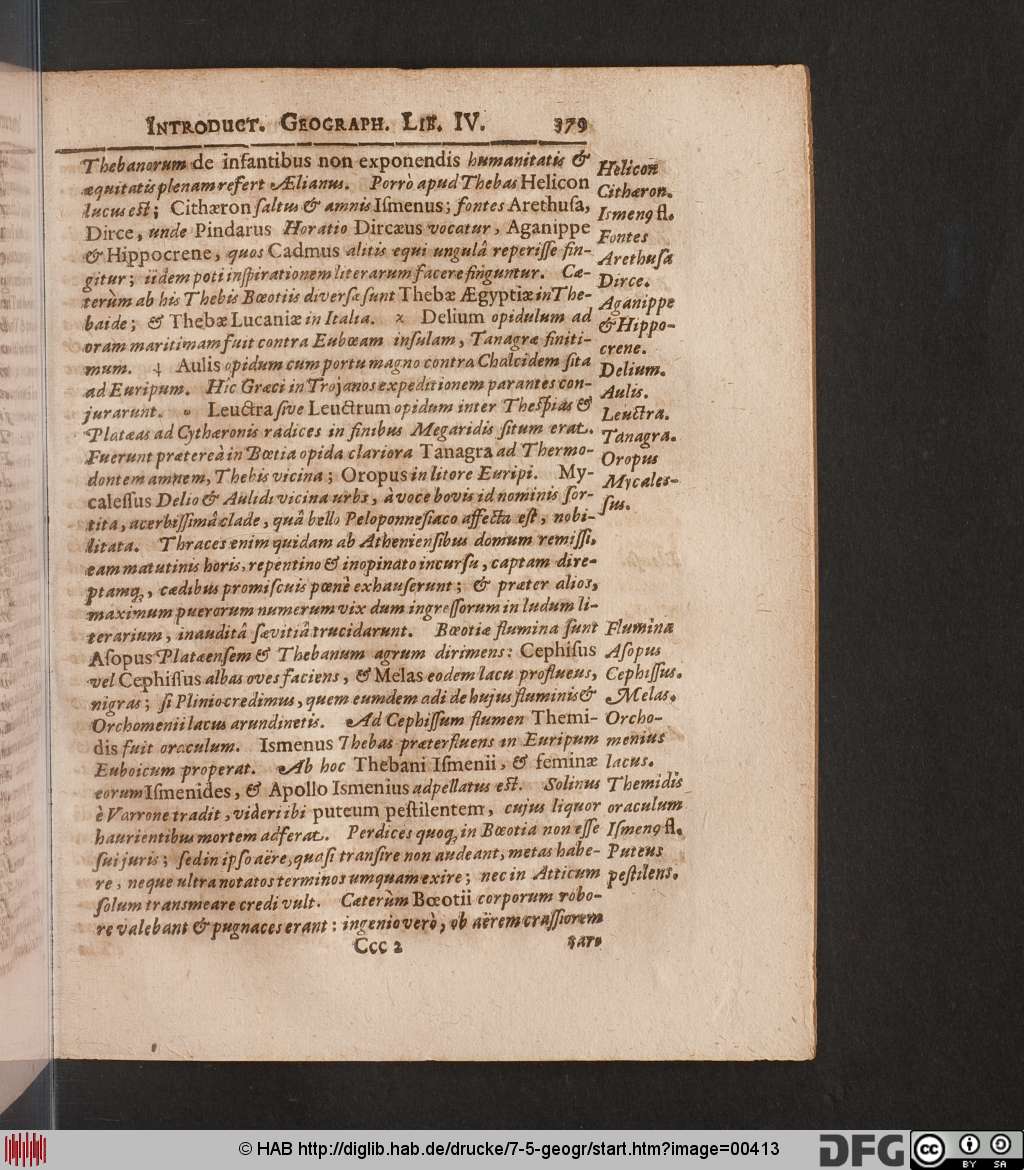 INTRODUCT. GEOGRAPH. LIB. IV. 379
Thebanorum de infantibus non exponendis humanitatis &
æquitatis plenam refert Ælianus. Porrò apud Thebas Helicon
lucus est; Cithæron saltus & amnis Ismenus; fontes Arethusa,
Dirce, unde Pindarus Horatio Dircæus vocatur, Aganippe
& Hippocrene, quos Cadmus alitis equi ungulâ reperisse fin-
gitur; iidem poti inspirationem literarum facere finguntur. Cæ-
terùm ab his Thebis Bœotiis diversæ sunt Thebæ Ægyptiæ in The-
baide; & Thebæ Lucaniæ in Italia. Delium opidulum ad
oram maritimam fuit contra Eubœam insulam, Tanagræ finiti-
mum. 4 Aulis opidum cum portu magno contra Chalcidem sita
ad Euripum. Hic Græci in Trojanos expeditionem parantes con-
jurarunt. Leuctra sive Leuctrum opidum inter Thespias &
Platæas ad Cythæronis radices in finibus Megaridis situm erat.
Fuerunt prætereà in Bœtia opida clariora Tanagra ad Thermo-
dontem amnem, Thebis vicina; Oropus in litore Euripi. My-
calessus Delio & Aulidi vicina urbs, à voce bovis id nominis sor-
tita, acerbissimâ clade, quâ bello Peloponnesiaco affecta est, nobi-
litata. Thraces enim quidam ab Atheniensibus domum remissi,
eam matutinis horis, repentino & inopinato incursu, captam dire-
ptamq;, cædibus promiscuis pœnè exhauserunt; & præter alios,
maximum puerorum numerum vix dum ingressorum in ludum li-
terarium, inauditâ sævitiâ trucidarunt. Bœotiæ flumina sunt
Asopus Platæensem & Thebanum agrum dirimens: Cephisus
vel Cephissus albas oves faciens, & Melas eodem lacu profluens,
nigras; si Plinio credimus, quem eumdem adi de hujus fluminis &
Orchomenii lacus arundinetis. Ad Cephissum flumen Themi-
dis fuit oraculum. Ismenus Thebas præterfluens in Euripum
Euboicum properat. Ab hoc Thebani Ismenii, & feminæ
eorum Ismenides, & Apollo Ismenius adpellatus est. Solinus
è Varrone tradit, videri ibi puteum pestilentem, cujus liquor
haurientibus mortem adferat. Perdices quoq; in Bœotia non esse
sui juris; sed in ipso aëre, quasi transire non audeant, metas habe-
re, neque ultra notatos terminos umquam exire; nec in Atticum
solum transmeare credi vult. Cæterùm Bœotii corporum robo-
re valebant & pugnaces erant: ingenio verò, ob aërem crassiorem
Ccc 2 raro
Helicon
Cithæron.
Ismenꝰ fl.
Fontes
Arethusa
Dirce.
Aganippe
& Hippo-
crene.
Delium.
Aulis.
Leuctra.
Tanagra.
Oropus
Mycales-
sus.
Flumina
Asopus
Cephissus.
Melas.
Orcho-
menius
lacus.
Themidis
oraculum
Ismenꝰ fl.
Puteus
pestilens.
© HAB http://diglib.hab.de/drucke/7-5-geogr/start.htm?image=00413
DFG
cc BY SA